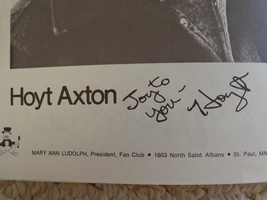 Hoyt Axton
Joy to
you -
Hoyt
MARY ANN LUDOLPH, President, Fan Club • 1603 North Saint Albans • St. Paul, MN